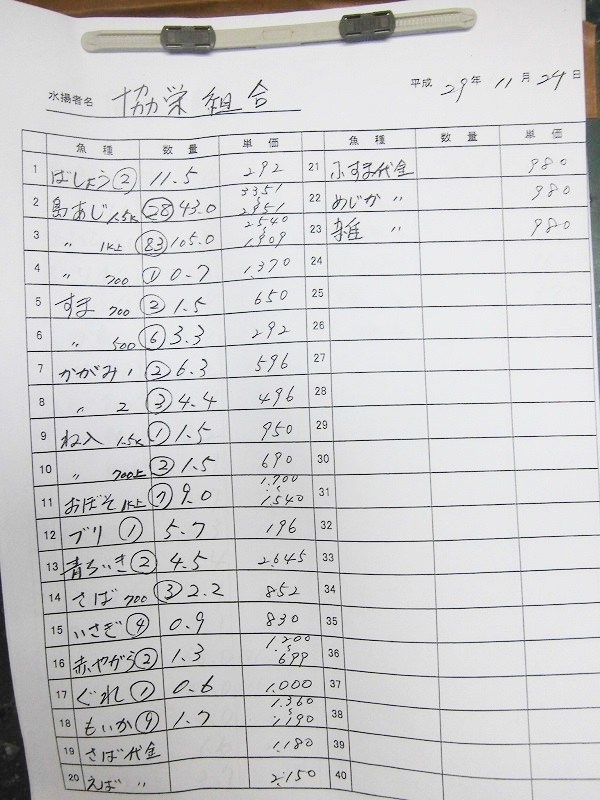 水揚者名 協栄組合 平成 29年 11月 24日
魚種 数量 単価 魚種 数量 単価
1 ばしょう ② 11.5 292 21 ふすま代金 980
2 島あじ 1.5K ㉘ 43.0 3351 S 2951 22 めじか 〃 980
3 〃 1K上 (83) 105.0 2540 S 1,909 23 雑 〃 980
4 〃 700 ① 0.7 1,370 24
5 すま 700 ② 1.5 650 25
6 〃 500 ⑥ 3.3 292 26
7 かがみ 1 ② 6.3 596 27
8 〃 2 ③ 4.4 496 28
9 ね入 1.5K ① 1.5 950 29
10 〃 700上 ② 1.5 690 30
11 おぼそ 1K上 ⑦ 9.0 1,700 S 1,540 31
12 ブリ ① 5.7 196 32
13 青ぢぃき ② 4.5 2,645 33
14 さば 700 ③ 2.2 852 34
15 いさぎ ④ 0.9 830 35
16 赤やがら ② 1.3 1,200 S 699 36
17 ぐれ ① 0.6 1,000 37
18 もいか ⑨ 1.7 1,360 S 1,190 38
19 さば代金 1,180 39
20 えば 〃 2,150 40